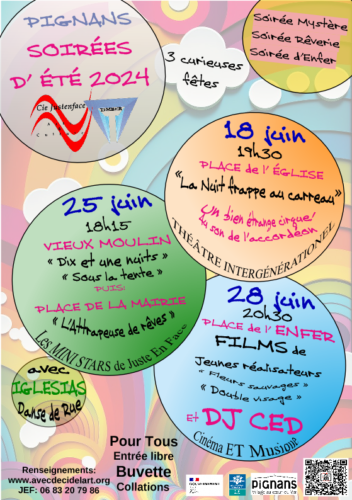 PIGNANS
SOIRÉES
D' ÉTÉ 2024
Cie Justenface
3 curieuses
fêtes
Soirée Mystère
Soirée Rêverie
Soirée d'Enfer
18 juin
19h30
PLACE de l' ÉGLISE
« La Nuit frappe au carreau »
Un bien étrange cirque/
au son de l'accordéon
THÉÂTRE INTERGÉNÉRATIONEL
25 juin
18h15
VIEUX MOULIN
« Dix et une nuits »
« Sous la tente »
PUIS:
PLACE DE LA MAIRIE
« L'Attrapeuse de rêves »
Les MINI STARS de Juste En Face
28 juin
20h30
PLACE de l' ENFER
FILMS de
Jeunes réalisateurs
« Fleurs sauvages »
« Double visage »
et DJ CED
Cinéma ET Musique
avec
IGLESIAS
Danse de Rue
Pour Tous
Entrée libre
Buvette
Collations
Renseignements:
www.avecdecidelart.org
JEF: 06 83 20 79 86
pignans